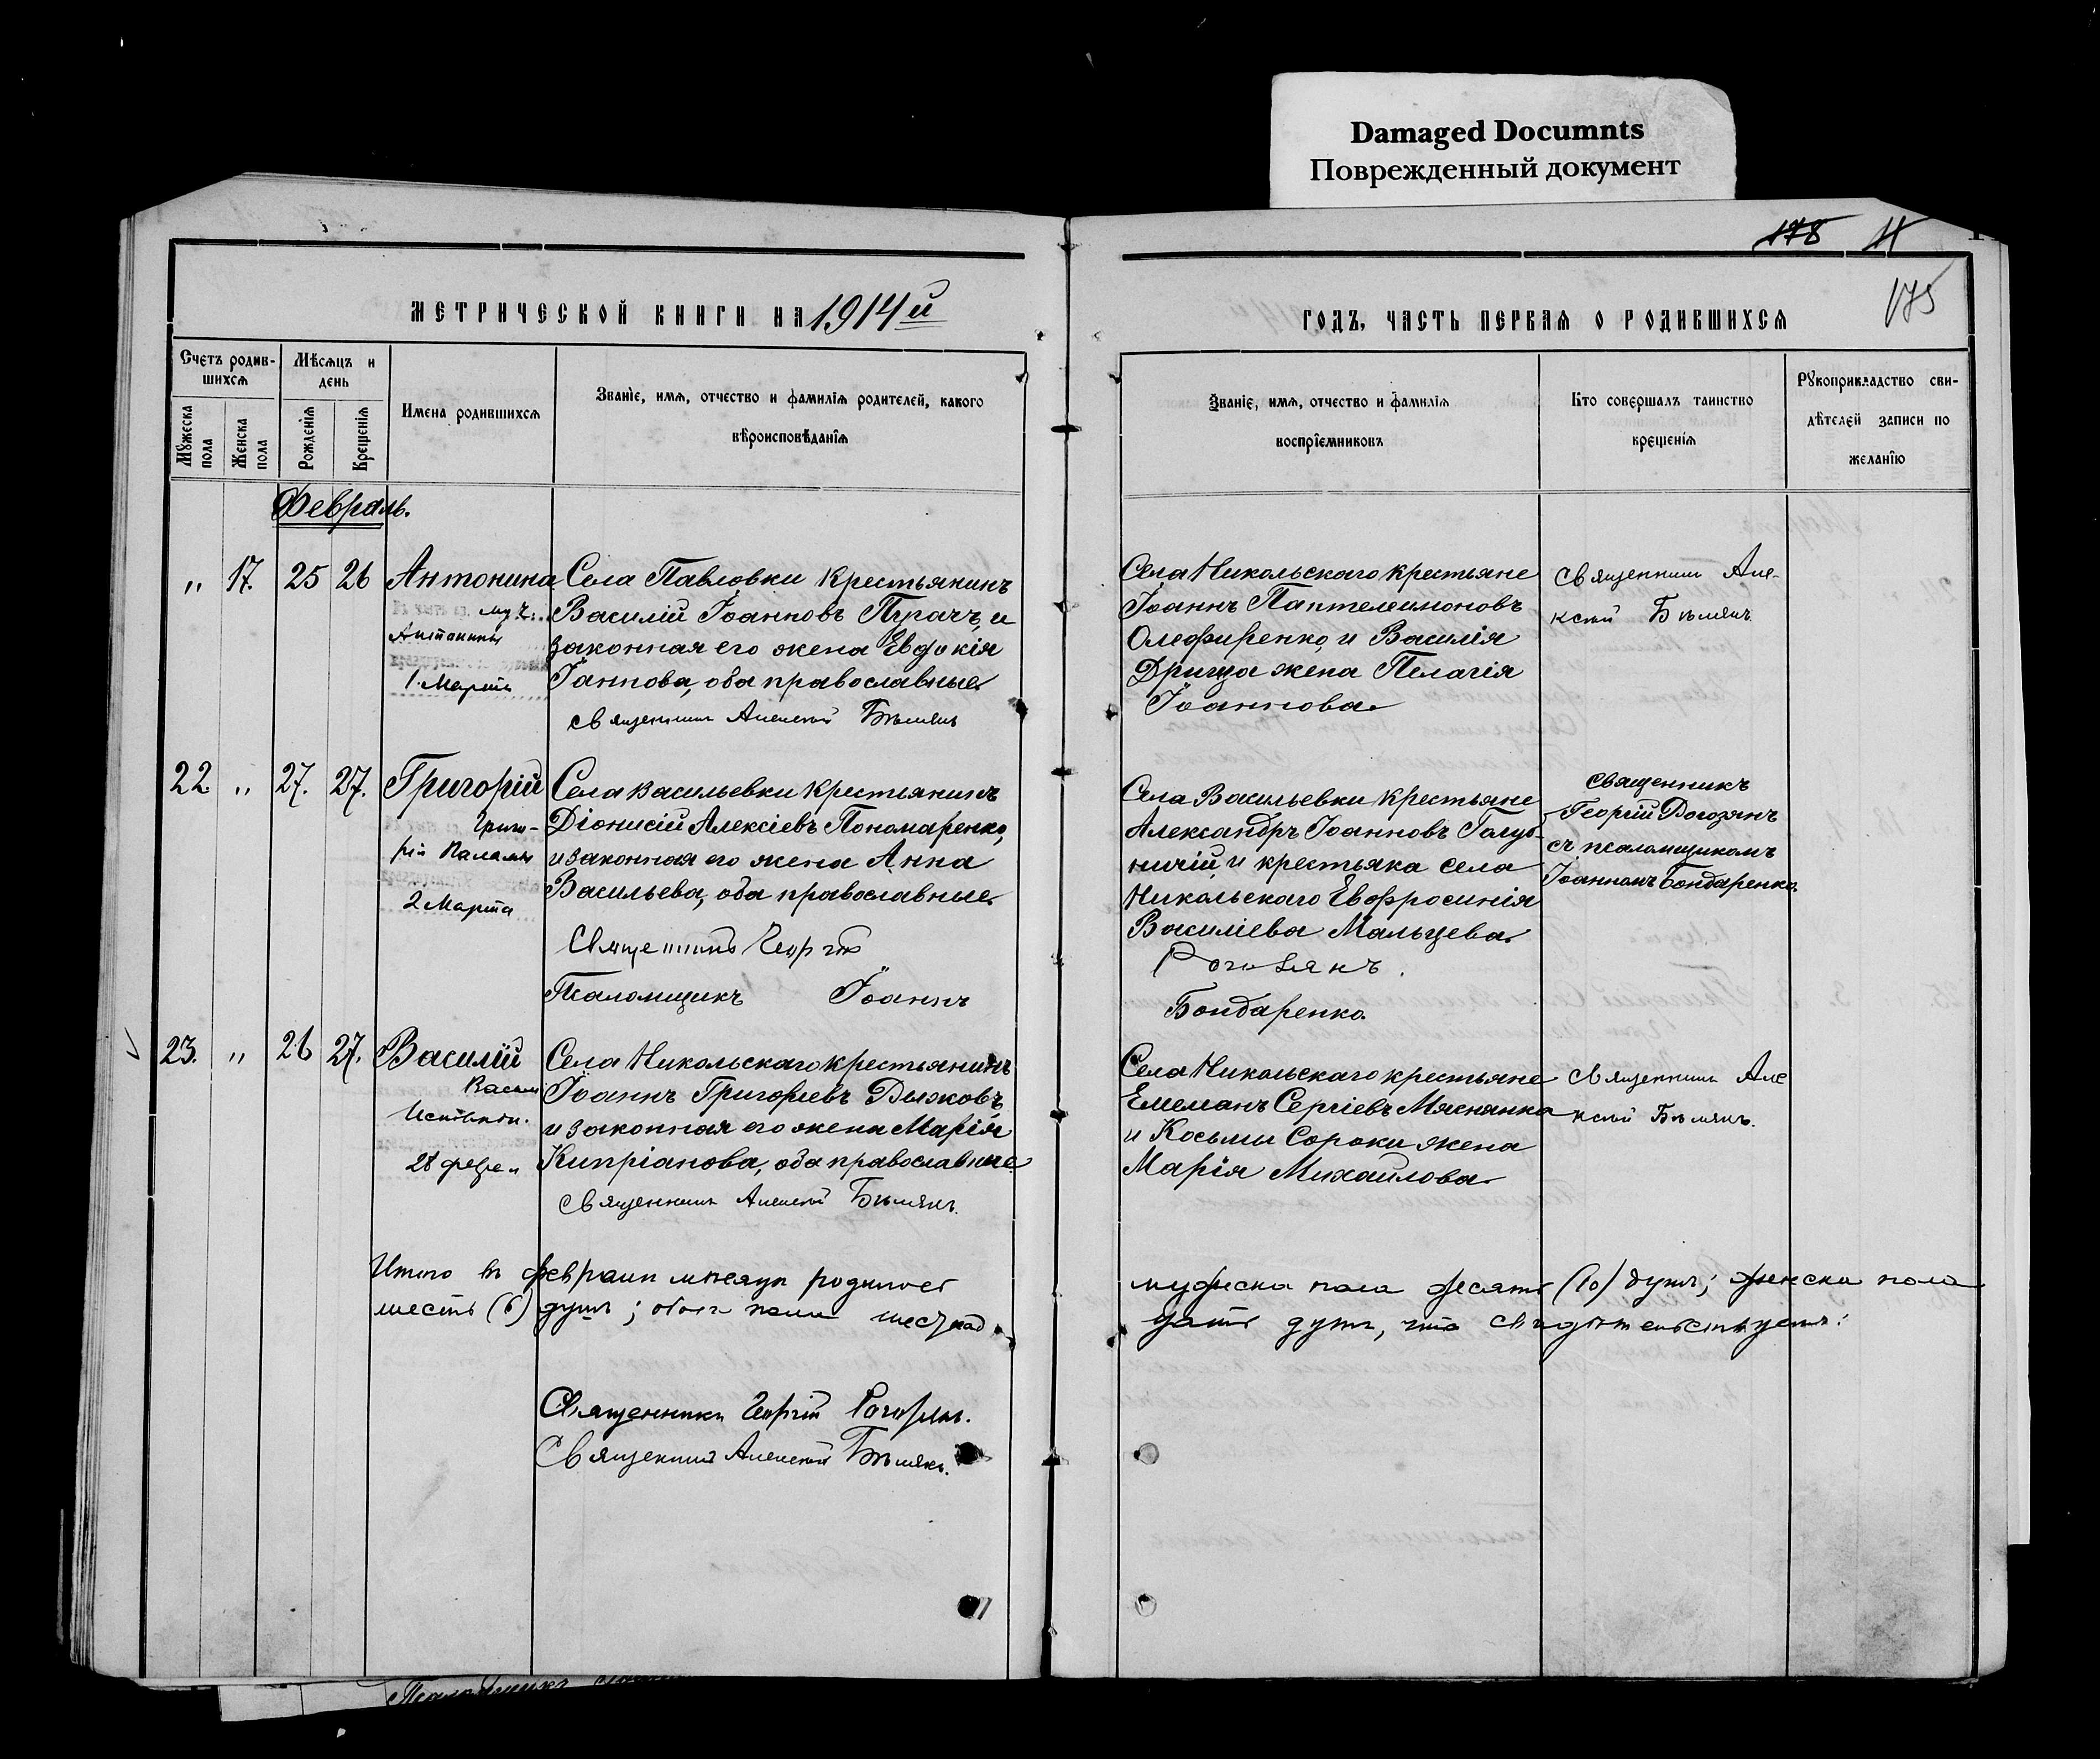 Damaged Documnts
Поврежденный документ
178 11
175
МЕТРИЧЕСКОЙ КНИГИ НА 1914й
ГОДЪ, ЧАСТЬ ПЕРВАЯ О РОДИВШИХСЯ
Счетъ родив-
шихся
Мужеска пола
Женска пола
Мѣсяцъ и
день
Рожденія
Крещенія
Имена родившихся
Званіе, имя, отчество и фамилія родителей, какого
вѣроисповѣданія
Званіе, имя, отчество и фамилія
воспріемниковъ
Кто совершалъ таинство
крещенія
Рукоприкладство сви-
дѣтелей записи по
желанію
Февраль.
„ 17. 25 26 Антонина
муч.
Антонины
1 Марта
Села Павловки крестьянинъ
Василій Іоанновъ Пугачъ, и
законная его жена Евдокія
Іаннова, оба православные.
Священникъ Алексій Бѣлякъ
Села Никольскаго крестьяне
Іоаннъ Пантелеимоновъ
Олефиренко, и Василія
Дрища жена Пелагія
Іоаннова.
Священникъ Але-
ксій Бѣлякъ.
22. „ 27. 27. Григорій
Григо-
рія Паламы
2 Марта
Села Васильевки крестьянинъ
Діонисій Алексіевъ Пономаренко,
и законная его жена Анна
Васильева, оба православные.
Священникъ Георгій
Псаломщикъ Іоаннъ
Села Васильевки крестьяне
Александръ Іоанновъ Голуб-
ничій, и крестьянка села
Никольскаго Евфросинія
Василіева Мальцева.
Рогозянъ.
Бондаренко.
Священникъ
Георгій Рогозянъ
съ псаломщикомъ
Іоанномъ Бондаренко.
23. „ 26 27. Василій
Васил
Исповѣдн.
28 февр.
Села Никольскаго крестьянинъ
Іоаннъ Григоріевъ Рыжковъ,
и законная его жена Марія
Кипріанова, оба православные
Священникъ Алексій Бѣлякъ.
Села Никольскаго крестьяне
Емеланъ Сергіевъ Мяснянко
и Косьмы Сороки жена
Марія Михайлова.
Священникъ Але
ксій Бѣлякъ.
Итого въ февралѣ мѣсяцѣ родилось мужеска пола десять (10) душъ; женска пола
шесть (6) душъ; обоего пола шестнад цать душъ, что свидѣтельствуемъ:
Священникъ Георгій Рогозянъ.
Священникъ Алексій Бѣлякъ.